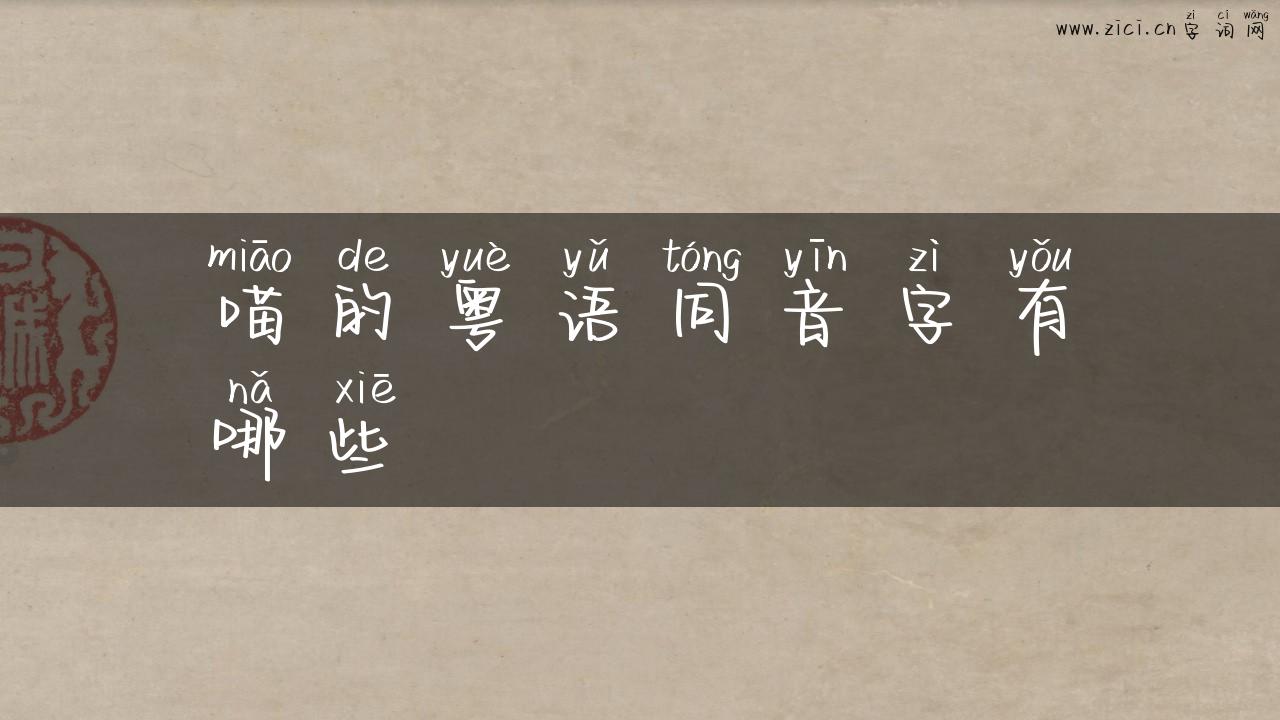 zì cí wǎng
www.zici.cn 字词网
miāo de yuè yǔ tóng yīn zì yǒu
喵的粤语同音字有
nǎ xiē
哪些